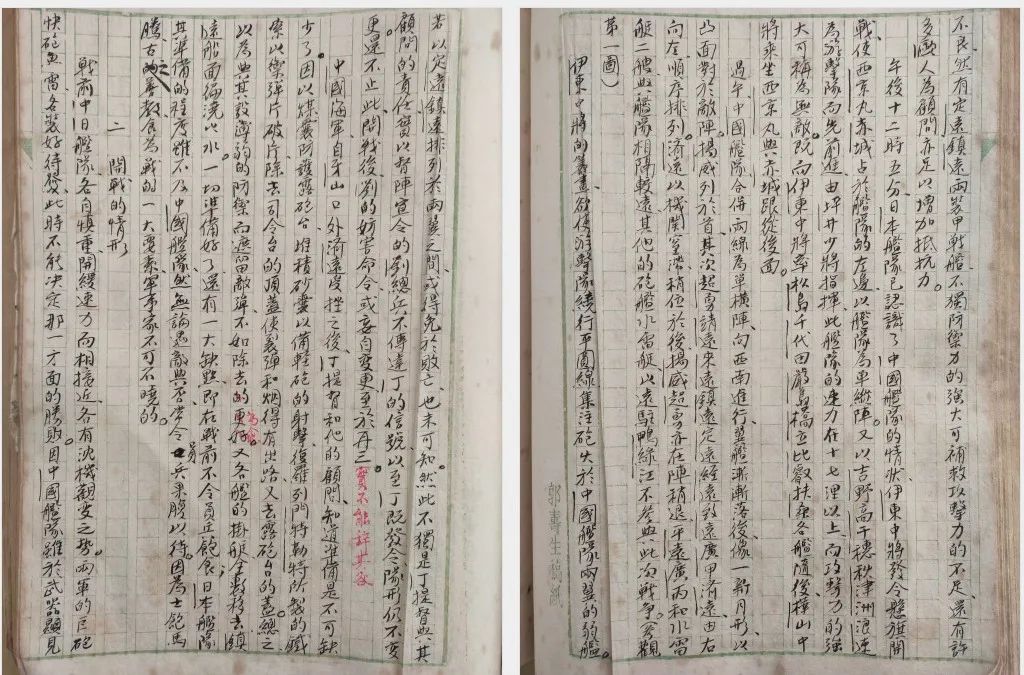 不良、然有定遠鎮遠兩裝甲戰艦、不獨防禦力的強大可補救攻擊力的不足、還有許
多歐人為顧問、亦足以增加抵抗力。
午後十二時五分、日本艦隊已認識了中國艦隊的情狀、伊東中將發令懸旗開
戰、使西京丸赤城占於艦隊的左邊、以艦隊為單縱陣。又以吉野高千穗秋津洲浪速
為游擊隊而先前進、由坪井少將指揮、此艦隊的速力在十七浬以上、而攻擊力的強
大可稱為無敵。既而伊東中將率松島千代田嚴島橋立比叡扶桑各艦隨後、樺山中
將乘坐西京丸與赤城跟從後面。
過午、中國艦隊合併兩線為單橫陣、向西南進行、翼艦漸漸落後、像一新月形、以
凸面對於敵陣。揚威列於首、其次超勇靖遠來遠鎮遠定遠經遠致遠廣甲濟遠由右
向左順序排列。濟遠以機關室滯稍位於後、揚威超勇亦在陣稍退、平遠廣丙和水雷
艇二艘與艦隊相隔較遠、其他的砲艦水雷艇以遠駐鴨綠江不參與此次戰爭。(參觀
第一圖)
伊東中將的籌畫、欲使游擊隊繞行平圓線集注砲火於中國艦隊兩翼的弱艦。
郭壽生稿紙
若以定遠鎮遠排列於兩翼之間、或得免於敗亡、也未可知。然此不獨是丁提督與其
顧問的責任、實以督陣宣令的劉總兵不傳達丁的信號、以至丁既發令、隊形仍不變
更。還不止此、開戰後劉的妨害命令或妄自變更至於再三、實不能辭其咎
中國海軍自牙山口外濟遠受挫之後、丁提督和他的顧問知道準備是不可缺
少了。因以煤囊防護露砲台、堆積砂囊以備輕砲的射擊、復羅列
以禦彈片破片、除去司令台的頂蓋、使裂彈和烟得有出路、又去露砲台的蓋。總之
以為與其設薄弱的防禦而遮留敵彈、不如除去的更好。又各艦的掛艇全數移去、鎮
遠船面徧澆以水、一切準備好了。還有一大缺點、即在戰前不令員兵飽食、日本艦隊
其準備的程度雖不及中國艦隊、然無論遇敵與否、常令員兵果腹以待。因為士飽馬
騰、古之教食為戰的一大要素、軍事家不可不曉的。
二 開戰的情形
戰前中日艦隊各自慎重、開緩速力而相接近、各有沈機觀變之勢。兩軍的巨砲
快砲魚雷各裝好待發、此時不能決定那一方面的勝敗。因中國艦隊雖於武器顯見